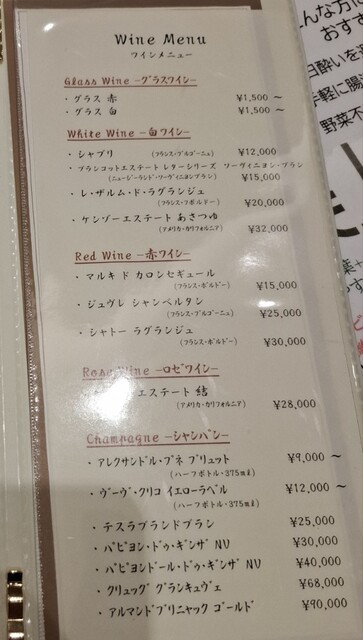 Wine Menu
ワインメニュー
Glass Wine -グラスワイン-
・グラス 赤 ¥1,500 ～
・グラス 白 ¥1,500 ～
White Wine -白ワイン-
・シャブリ (フランス・ブルゴーニュ) ¥12,000
・ブランコットエステート レターシリーズ ソーヴィニヨン・ブラン
(ニュージーランド・ソーヴィニヨンブラン) ¥15,000
・レ・ザルム・ド・ラグランジュ
(フランス・ボルドー) ¥20,000
・ケンゾーエステート あさつゆ
(アメリカ・カリフォルニア) ¥32,000
Red Wine -赤ワイン-
・マルキ ド カロンセギュール
(フランス・ボルドー) ¥15,000
・ジュヴレ シャンベルタン
(フランス・ブルゴーニュ) ¥25,000
・シャトー ラグランジュ
(フランス・ボルドー) ¥30,000
Rose Wine -ロゼワイン-
エステート 結
(アメリカ・カリフォルニア) ¥28,000
Champagne -シャンパン-
・アレクサンドル・ブネ ブリュット ¥9,000 ～
(ハーフボトル・375ml)
・ヴーヴ・クリコ イエローラベル ¥12,000 ～
(ハーフボトル・375ml)
・テスラブランドブラン ¥25,000
・パピヨン・ドゥ・ギンザ NV ¥30,000
・パピヨンドール・ドゥ・ギンザ NV ¥40,000
・クリュッグ グランキュヴェ ¥68,000
・アルマンドブリニャック ゴールド ¥90,000
んな方に
おす
日酔いを
手軽に腸
野菜不